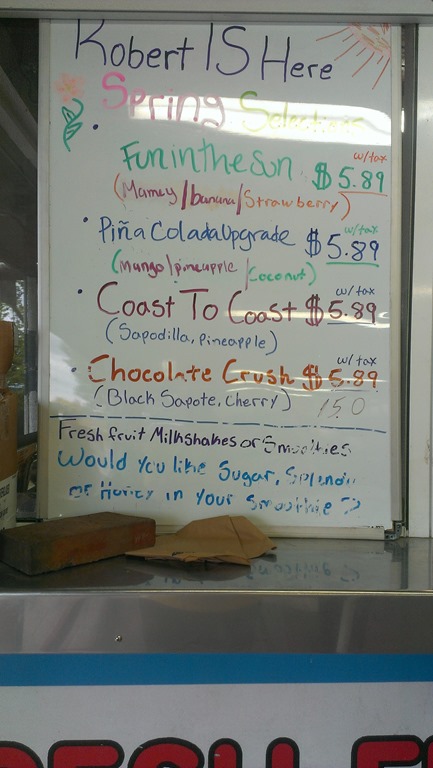 Robert IS Here
Spring Selections
Fun in the Sun $5.89 w/tax
(Mamey/banana/Strawberry)
Piña Colada Upgrade $5.89 w/tax
(Mango/pineapple/Coconut)
Coast To Coast $5.89 w/tax
(Sapodilla, pineapple)
Chocolate Crush $5.89 w/tax
(Black Sapote, Cherry) 150
Fresh fruit Milkshakes or Smoothies
Would You like Sugar, Splenda
or Honey in Your Smoothie